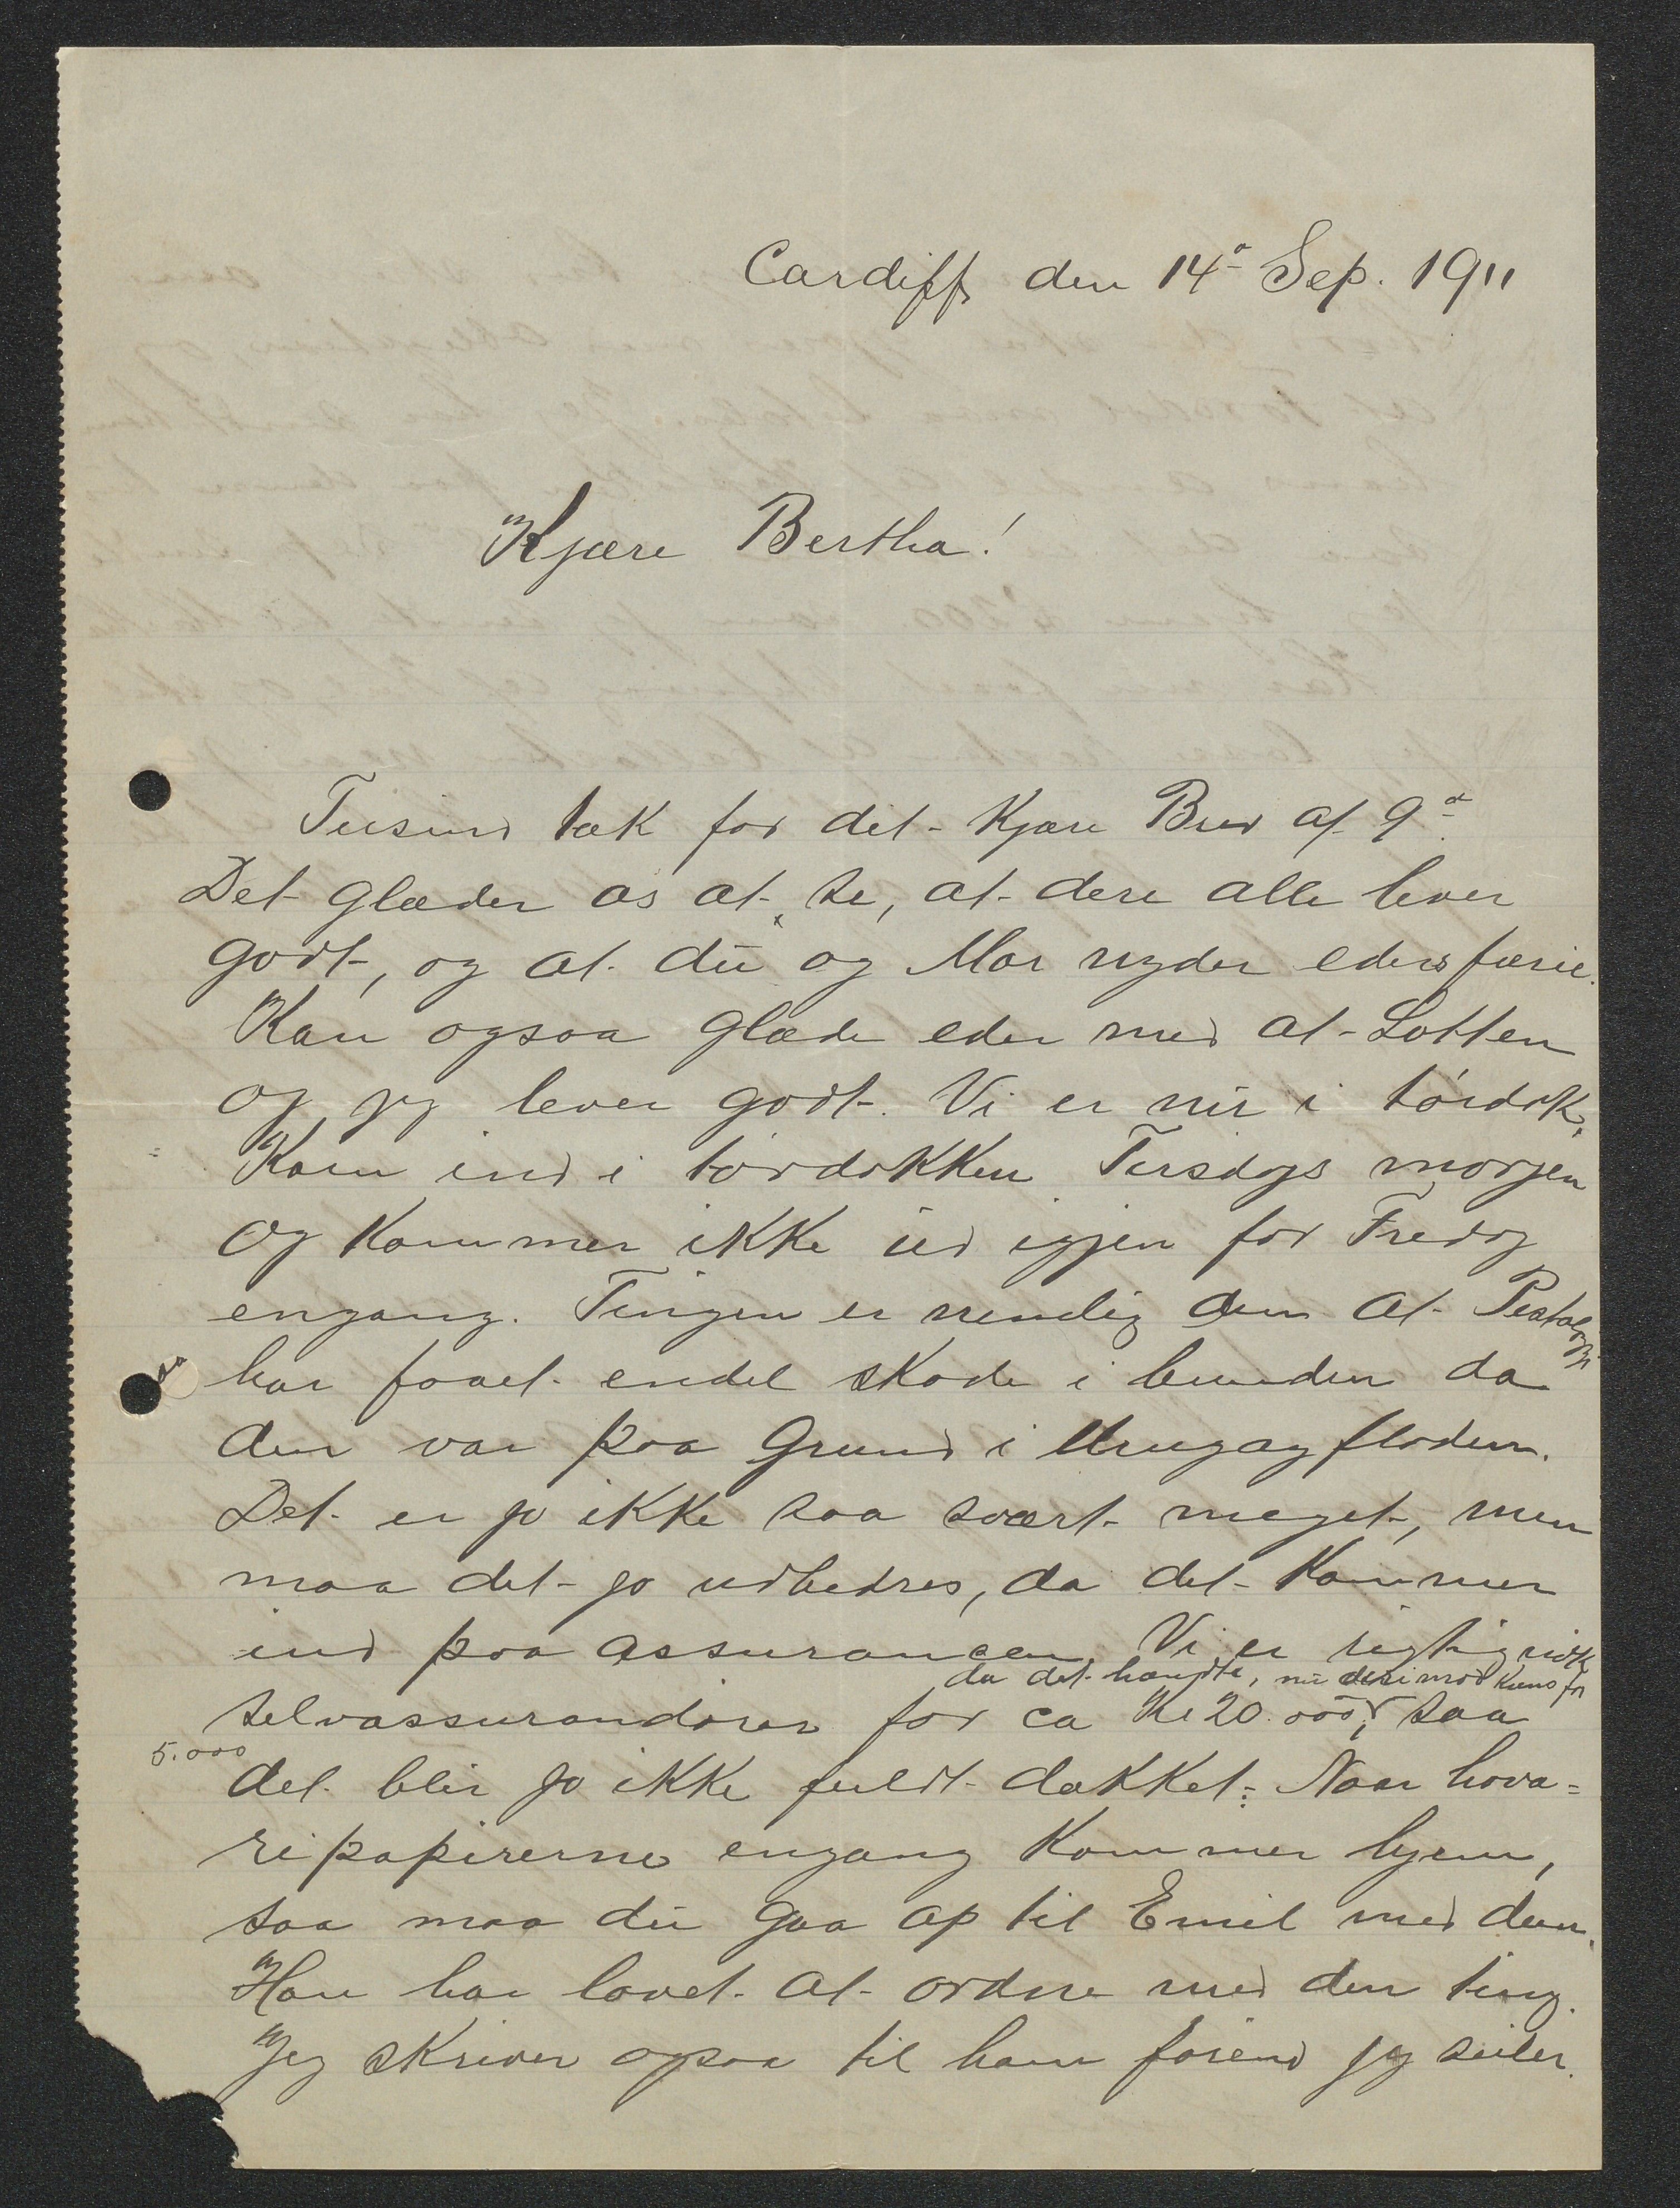 Cardiff den 14de Sep. 1911
Kjære Bertha!
Tusind tak for dit Kjære Brev af 9de
Det glæder os at se, at dere alle lever
godt, og at du og Mor nyder eders færie.
Kan ogsaa glæde eder med at Lotten
og jeg lever godt. Vi er nu i tørdok.
Kom ind i tørdokken Tirsdags morgen
og kommer ikke ud igjen før Fredag
engang. Tingen er nemlig den at Pestalozzi
har faaet endel skade i bunden da
den var paa Grund i Urugayfloden.
Det er jo ikke saa svært meget, men
maa det jo udbedres, da det kommer
ind paa assurancen. Vi er rigtig nok
da det hændte, nu derimod kuns for
selvassurandører for ca Kr 20.000, saa
5.000
det blir jo ikke fuldt dækket. Naar hava=
ripapirerne engang kommer hjem,
saa maa du gaa op til Emil med dem.
Han har lovet at ordne med den ting.
Jeg skriver ogsaa til ham førend jeg seiler.